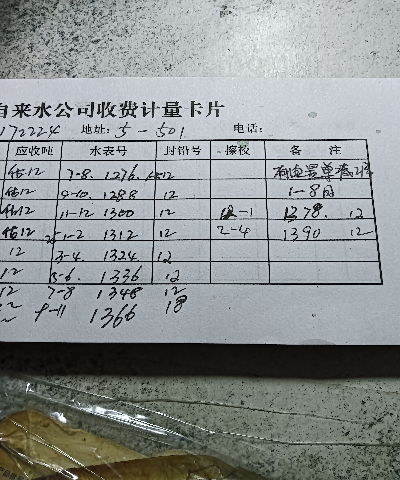 自来水公司收费计量卡片
172224 地址: 5-501 电话:
应收吨 水表号 封铅号 擦校 备 注
估12 7-8. 1276. 12
估12 9-10. 1288 12 1-8日
估12 11-12 1300 12 12-1 1378. 12
估12 1-2 1312 12 2-4 1390 12
12 3-4. 1324 12
12 5-6. 1336 12
12 7-8 1348 12
9-11 1366 18